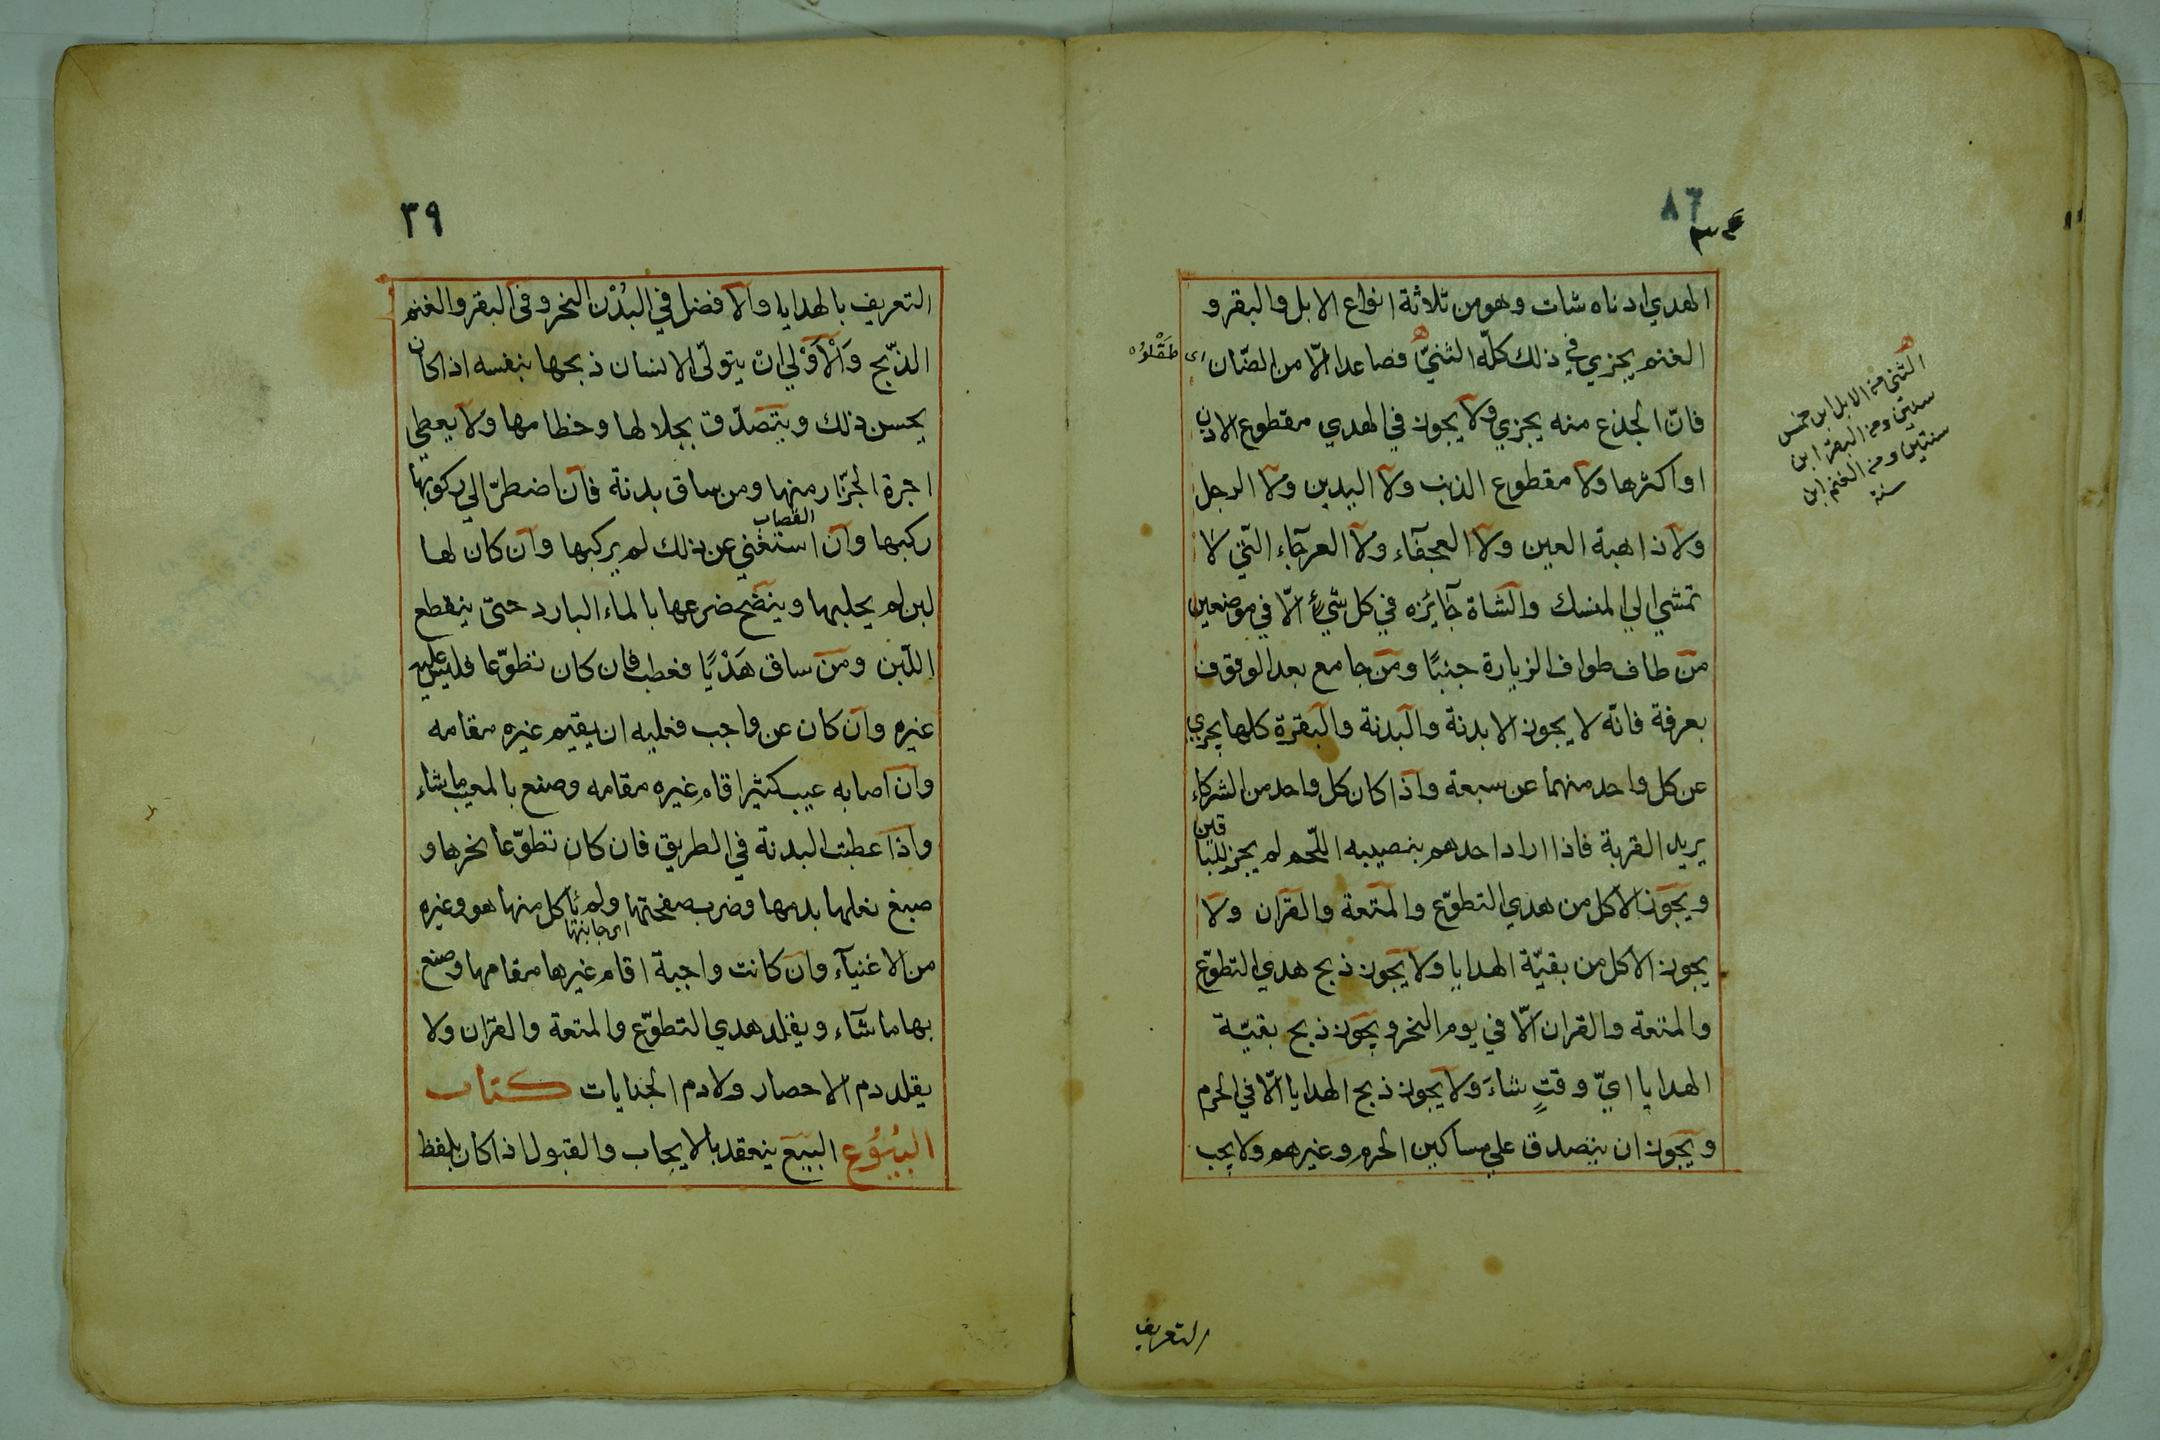 ٨٦
الهدي ادناه شات وهو من ثلاثة انواع الابل والبقر و
الغنم يجزي في ذلك كلّه الثنيّ فصاعدا الّا من الضّان
فانّ الجذع منه يجزي ولا يجوز في الهدي مقطوع الاذن
او اكثرها ولا مقطوع الذنب ولا اليدين ولا الرجل
ولا ذاهبة العين ولا العجفاء ولا العرجاء التّي لا
تمشي الي المنسك والشاة جآئزه في كل شيء الّا في موضعين
من طاف طواف الزيارة جنبًا ومن جامع بعد الوقوف
بعرفة فانّه لا يجوز الا بدنة والبدنة والبقرة كلها يجزي
عن كل واحد منهما عن سبعة واذا كان كل واحد من الشركاء
يريد القربة فاذا اراد احدهم بنصيبه اللّحم لم يجز للباقين
ويجوز الاكل من هدي التطوّع والمتعة والقران ولا
يجوز الاكل من بقيّة الهدايا ولا يجوز ذبح هدي التطوّع
والمتعة والقران الّا في يوم النحر ويجوز ذبح بقيّة
الهدايا ايّ وقتٍ شاءَ ولا يجوز ذبح الهدايا الّا في الحرم
ويجوز ان يتصدق علي مساكين الحرم وغيرهم ولا يجب
الثني من الابل ابن خمس
سنين ومن البقر ابن
سنتين ومن الغنم ابن
سنة
التعريف
٣٩
التعريف بالهدايا والافضل في البُدْن النحر وفي البقر والغنم
الذّبح وَالْاَوْلي انْ يتولّى الانسان ذبحها بنفسه اذا كان
يحسن ذلك ويتصدّق بجلالها وخطامها ولا يعطي
اجرة الجزّار منها ومن ساق بدنة فان اضطرّ الي ركوبها
القصاب
ركبها وان استغني عن ذلك لم يركبها وان كان لها
لبن لم يحلبها وينضح ضرعها بالماء البارد حتىّ ينقطع
اللّبن ومن ساق هَدْيًا فعطب فان كان تطوّعا فليس عليه
غيره وان كان عن واجب فعليه ان يقيم غيره مقامه
وان اصابه عيب كثير اقام غيره مقامه وصنع بالمعيب ما شاء
واذا عطبت البدنة في الطريق فان كان تطوّعا نحرها و
صبغ نعلها بدمها وضرب صفحتها ولم يأكل منها هو وغيره
اى جانبها
من الاغنيآء وان كانت واجبة اقام غيرها مقامها وصنع
بها ما شآء ويقلد هدي التطوّع والمتعة والقران ولا
يقلد دم الاحصار ولا دم الجنايات كتاب
البُيُوُع البيع ينعقد بالايجاب والقبول اذا كان بلفظ